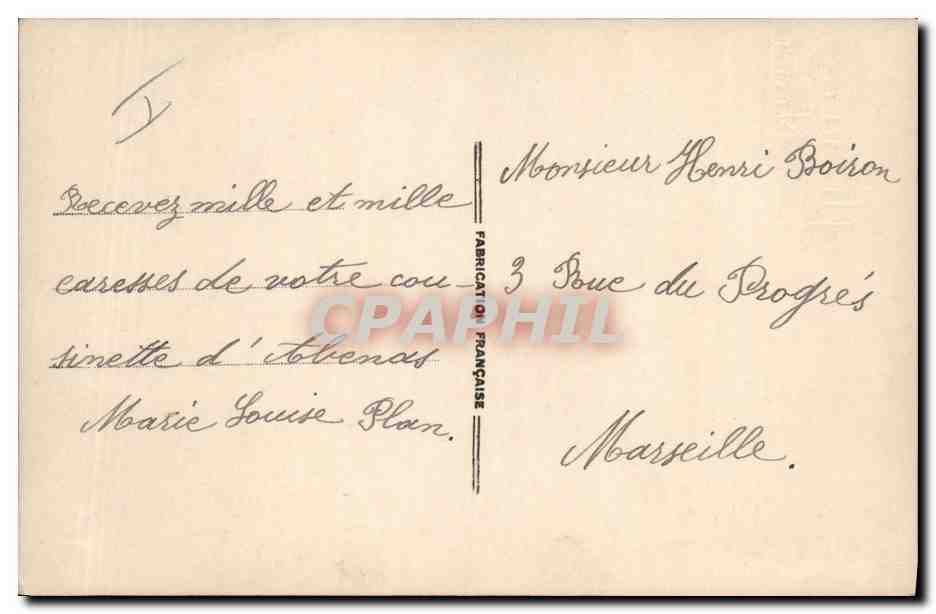 Recevez mille et mille
caresses de votre cou-
sinette d'Abenas
Marie Louise Plan.
FABRICATION FRANÇAISE
Monsieur Henri Boiron
3 Rue du Progrés
Marseille.
CPAPHIL